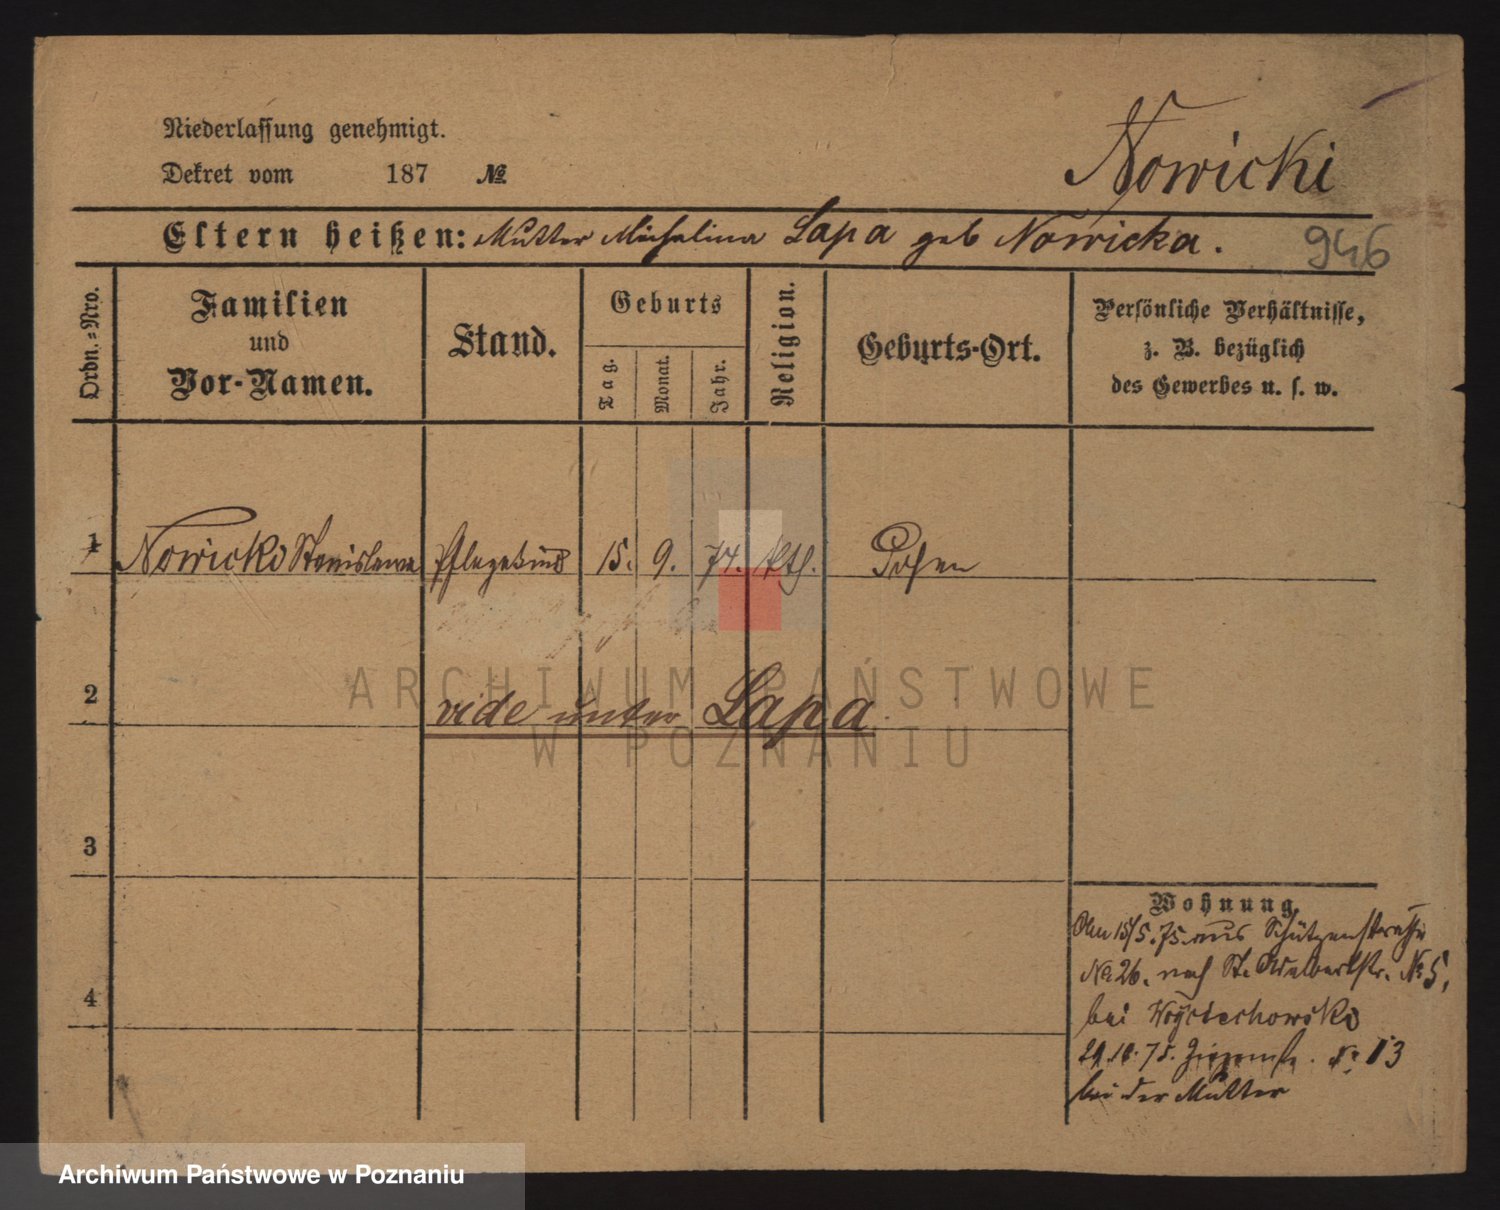 Niederlassung genehmigt.
Dekret vom 187 №
Nowicki
Eltern heißen: Mutter Michalina Lapa geb Nowicka.
946
Ordn.-Nro.
Familien und Vor-Namen.
Stand.
Geburts
Tag.
Monat.
Jahr.
Religion.
Geburts-Ort.
Persönliche Verhältnisse,
z. B. bezüglich
des Gewerbes u. s. w.
1 Nowicki Stanislawa Pflegekind 15. 9. 74. kth. Posen
2 vide unter Lapa
ARCHIWUM PAŃSTWOWE
W POZNANIU
3
4
Wohnung
15/5.75. aus Schützenstraße
No 26. nach St. Adalbertstr. № 5,
bei Woyciechowski
75. № 13
bei der Mutter
Archiwum Państwowe w Poznaniu